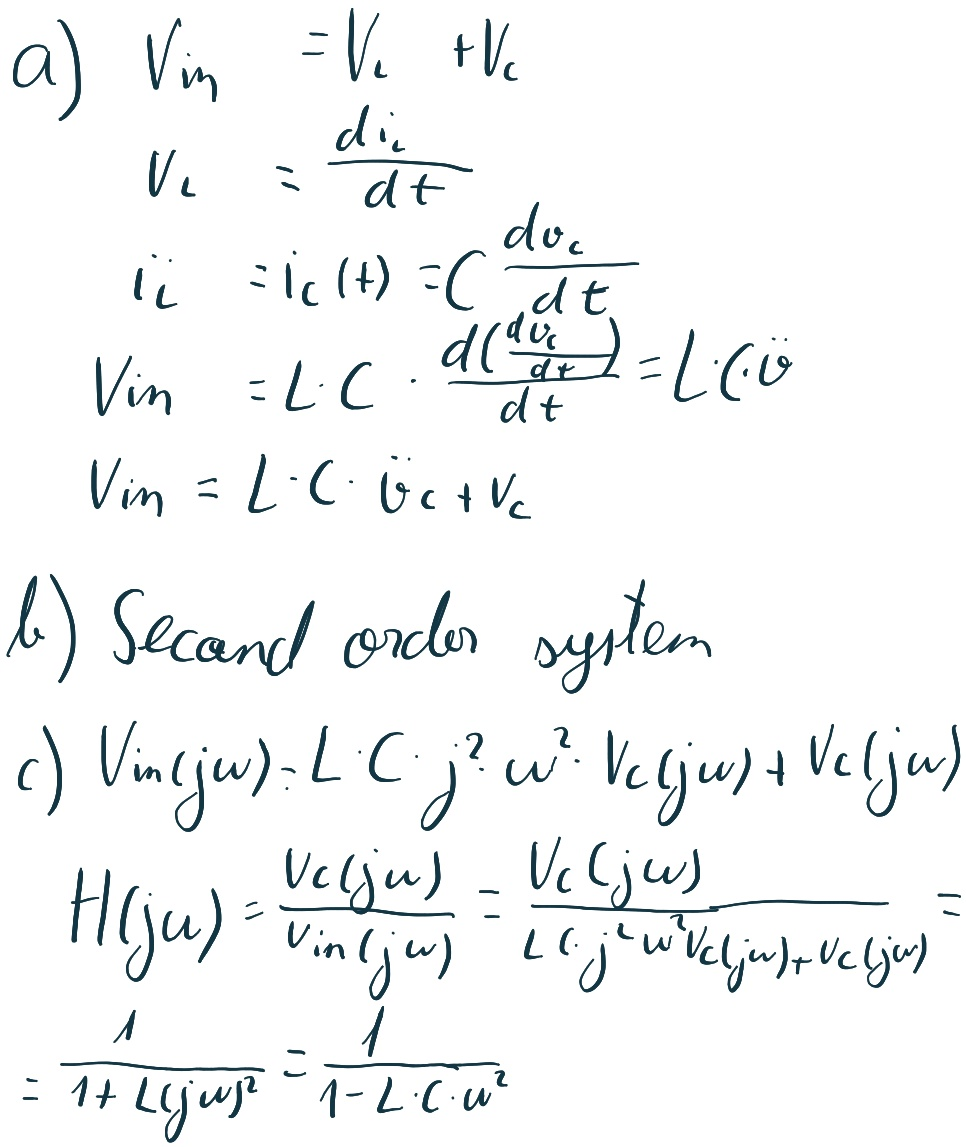 a) Vin = V_L + V_c
V_L = di_L/dt
i_L = i_c(t) = C dv_c/dt
Vin = L·C · d(dv_c/dt)/dt = L·C·v̈
Vin = L·C·v̈_c + V_c
b) Second order system
c) Vin(jω) = L·C·j²·ω²·V_c(jω) + V_c(jω)
H(jω) = V_c(jω)/Vin(jω) = V_c(jω)/(LC·j²ω²V_c(jω)+V_c(jω)) =
= 1/(1+LC(jω)²) = 1/(1-L·C·ω²)